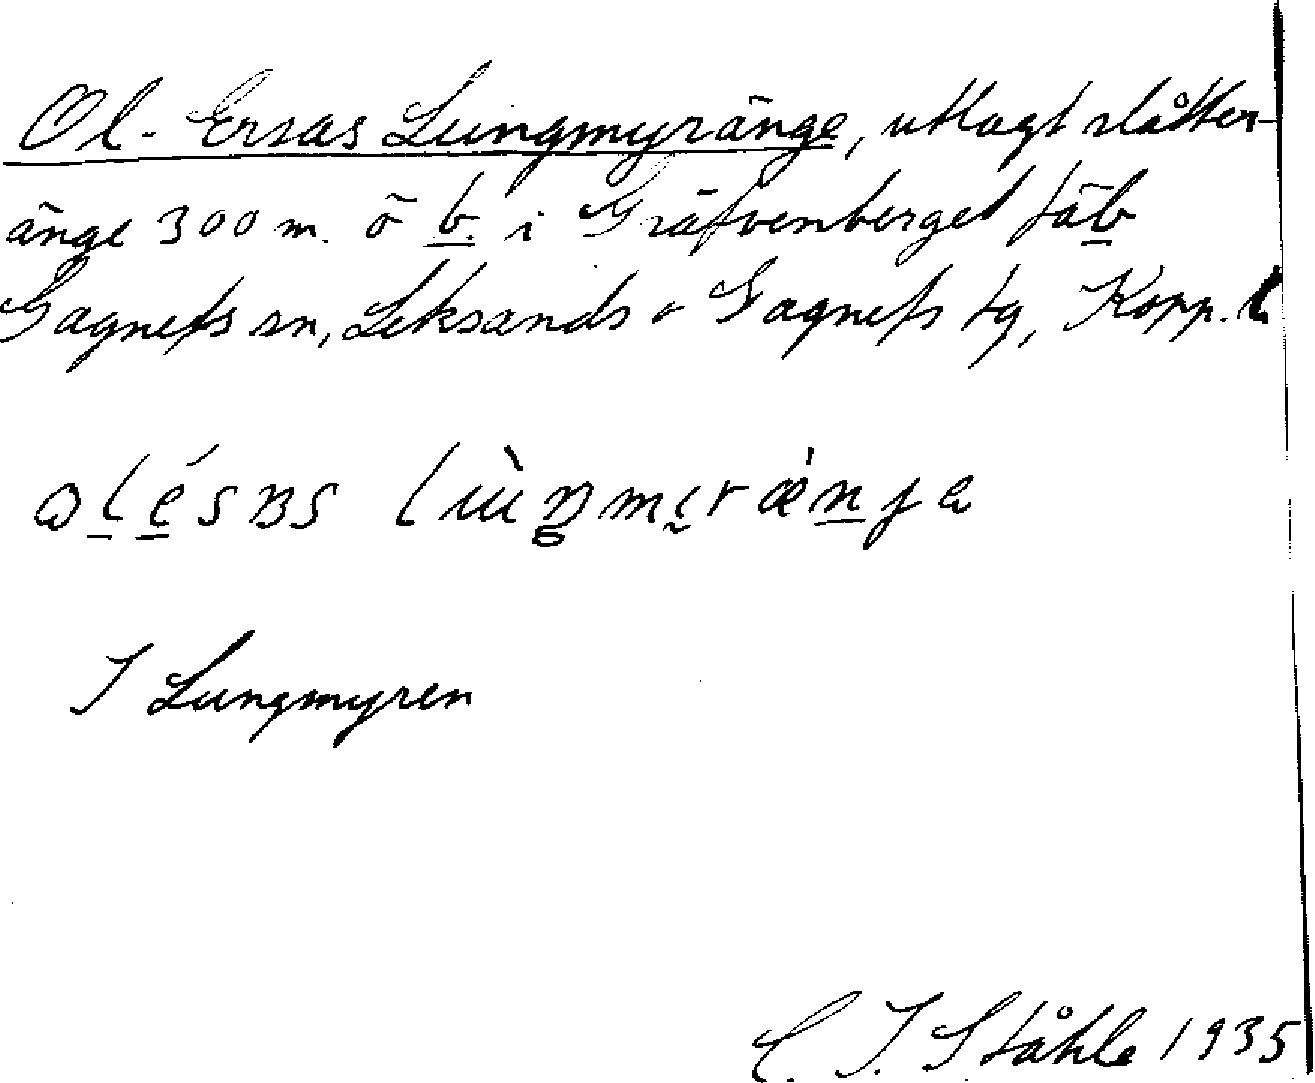 Ol-Ersas Lungmyränge, utlagt slåtter-
änge 300 m. ö b. i Gräfvenberget fäb
Gagnefs sn, Leksands o Gagnefs tg, Kopp. l
I Lungmyren
C. I. Ståhle 1935